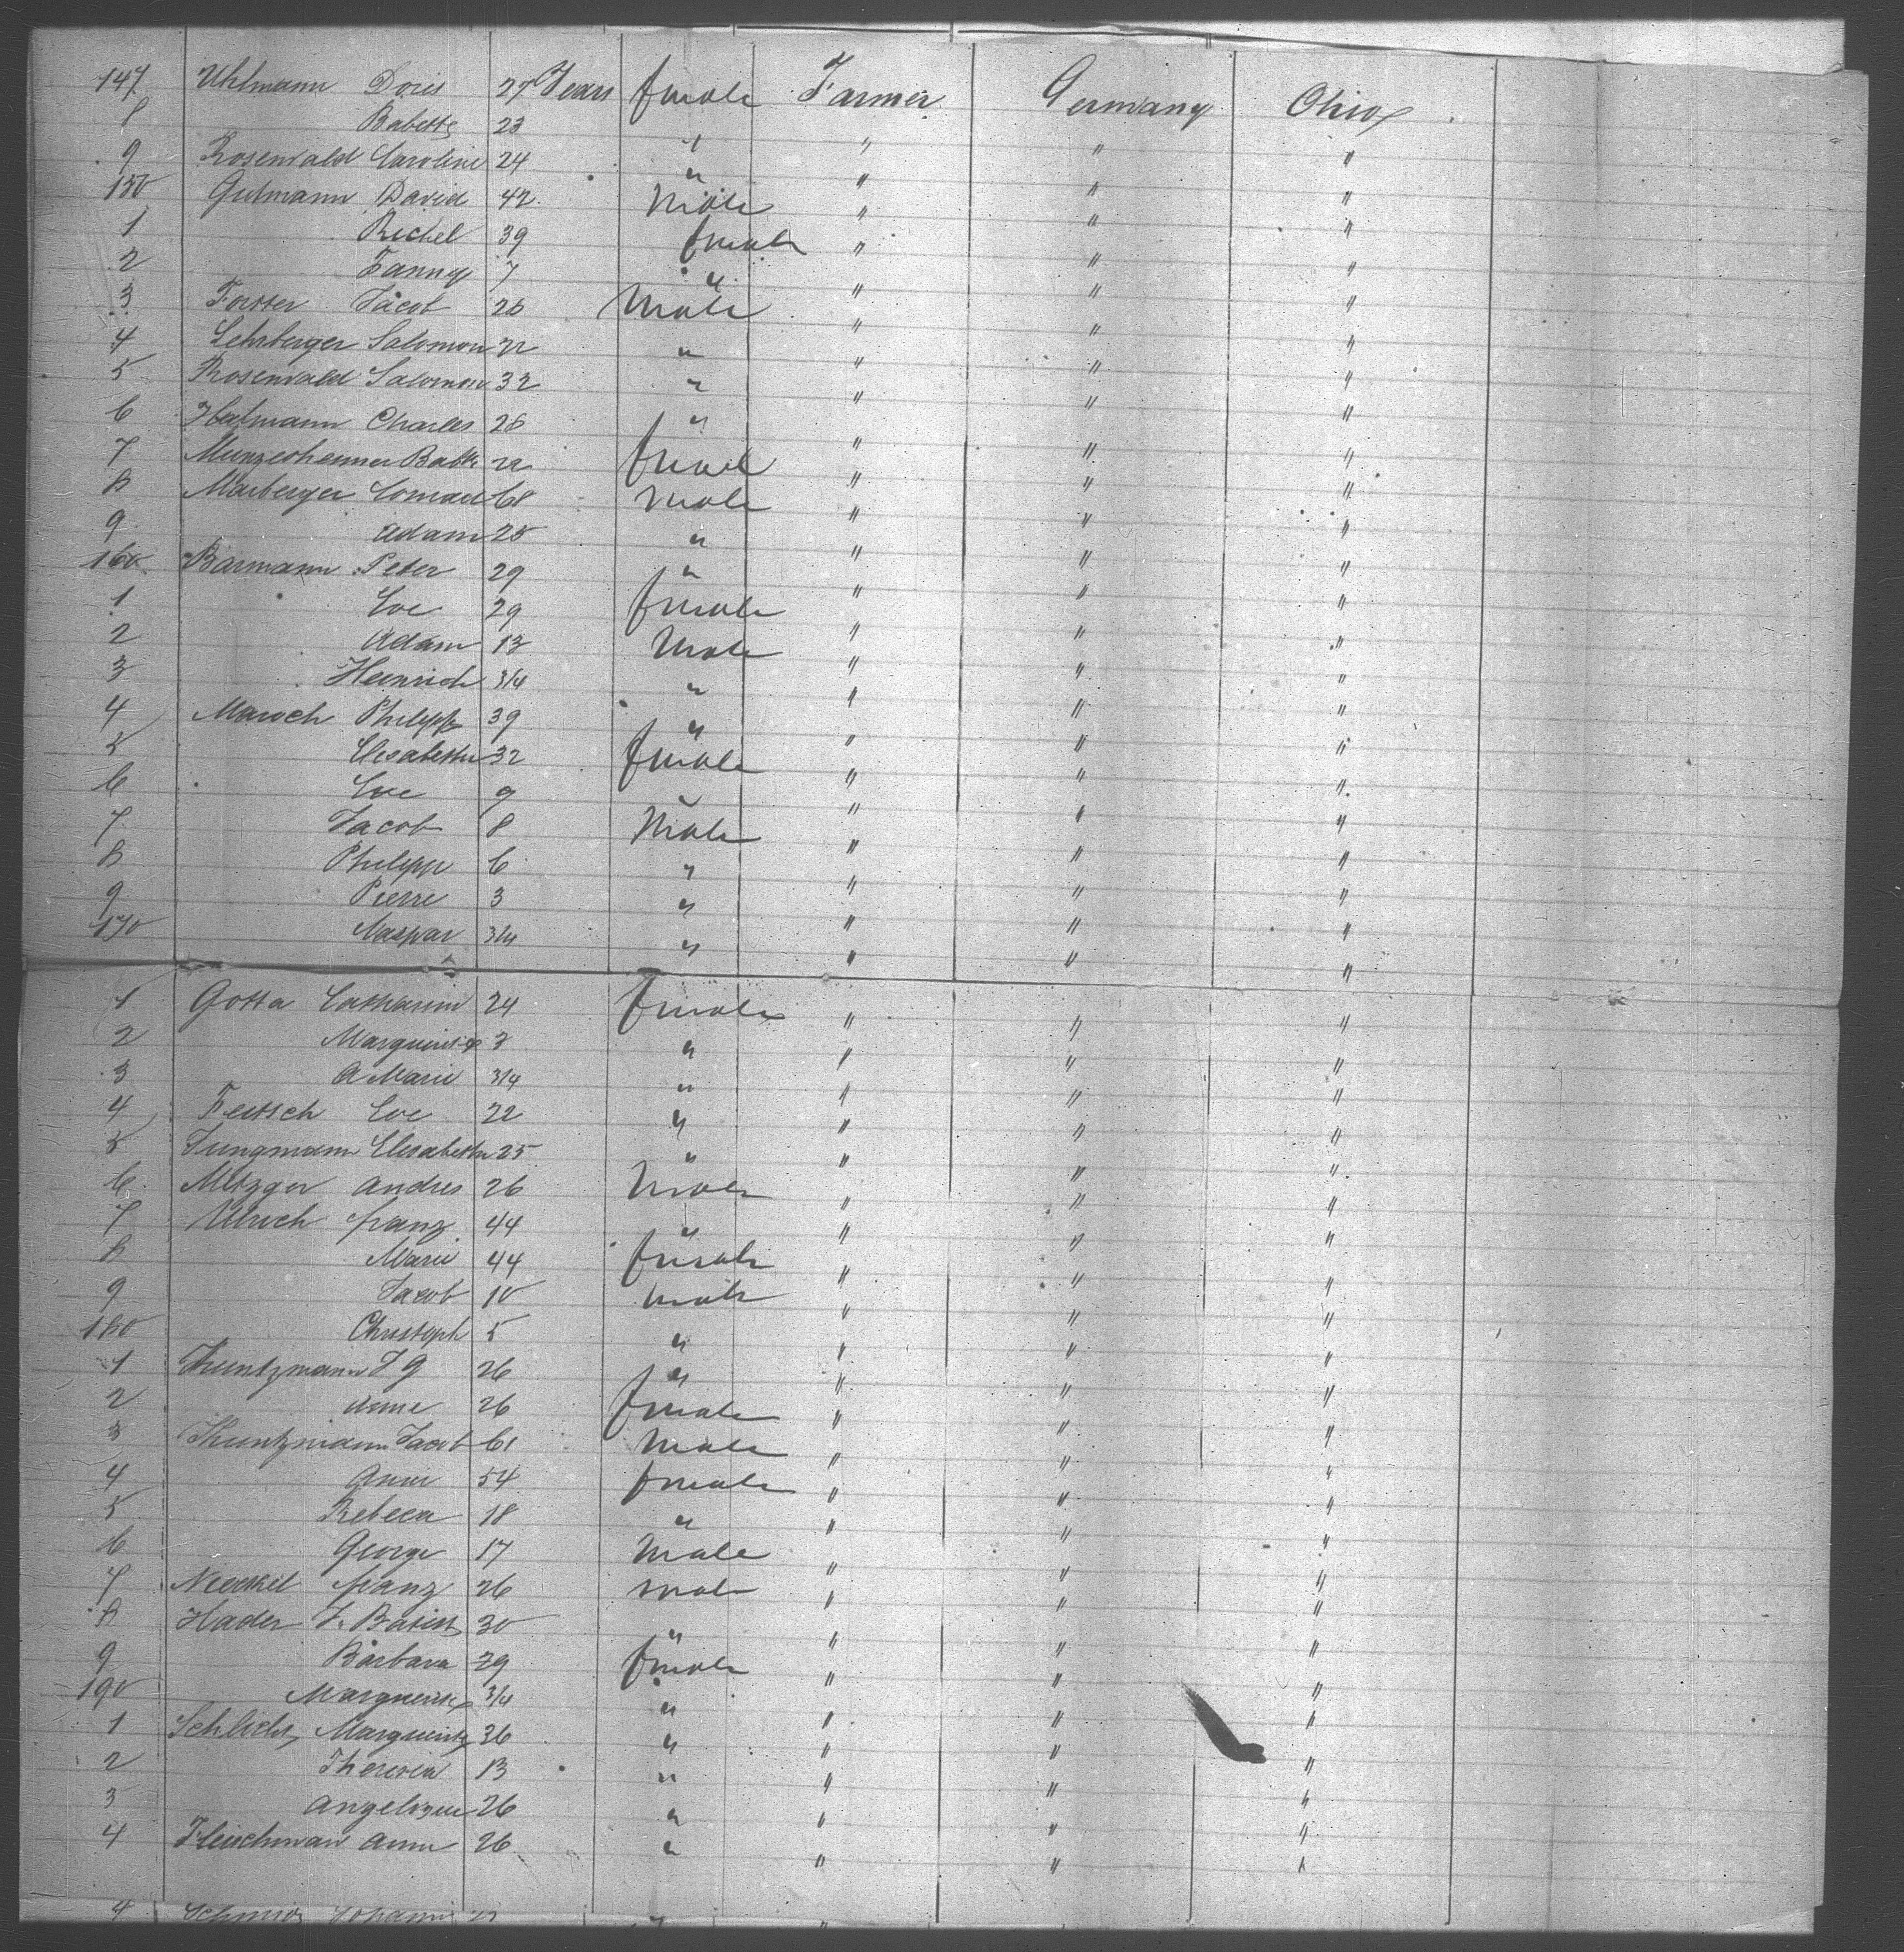 147 Uhlmann Doris 27 Years female Farmer Germany Ohio
8 Babette 23 " " " "
9 Rosenwald Caroline 24 " " " "
150 Gutmann David 42 Male " " "
1 Richel 39 female " " "
2 Fanny 7 " " " "
3 Forster Jacob 26 Male " " "
4 Lehrberger Salomon 22 " " " "
5 Rosenwald Salomon 32 " " " "
6 Hatmann Charles 26 " " " "
7 Munzesheimer Babt 22 female " " "
8 Marberger Conrad 68 male " " "
9 Adam 25 " " " "
160 Barmann Peter 29 " " " "
1 Eve 29 female " " "
2 Adam 13 Male " " "
3 Heinrich 3/4 " " " "
4 Maroch Philipp 39 " " " "
5 Elisabeth 32 female " " "
6 Eve 9 " " " "
7 Jacob 8 Male " " "
8 Philipp 6 " " " "
9 Pierre 3 " " " "
170 Kaspar 3/4 " " " "
1 Gotta Catharine 24 female " " "
2 Marguerite 3 " " " "
3 A Marie 3/4 " " " "
4 Feitsch Eve 22 " " " "
5 Jungmann Elisabeth 25 " " " "
6 Metzger Andres 26 Male " " "
7 Ulrich franz 44 " " " "
8 Marie 44 female " " "
9 Jacob 10 male " " "
180 Christoph 5 " " " "
1 Kuntzmann J G 26 " " " "
2 Anne 26 female " " "
3 Kuntzmann Jacob 61 Male " " "
4 Anne 54 female " " "
5 Rebeca 18 " " " "
6 George 17 Male " " "
7 franz 26 male " " "
8 Hader J. Batist 30 " " " "
9 Barbara 29 female " " "
190 Marguerite 3/4 " " " "
1 Schlicht Marguerite 36 " " " "
2 Theresia 13 " " " "
3 Angelique 26 " " " "
4 Fleischman Anna 26 " " " "
4 Johann